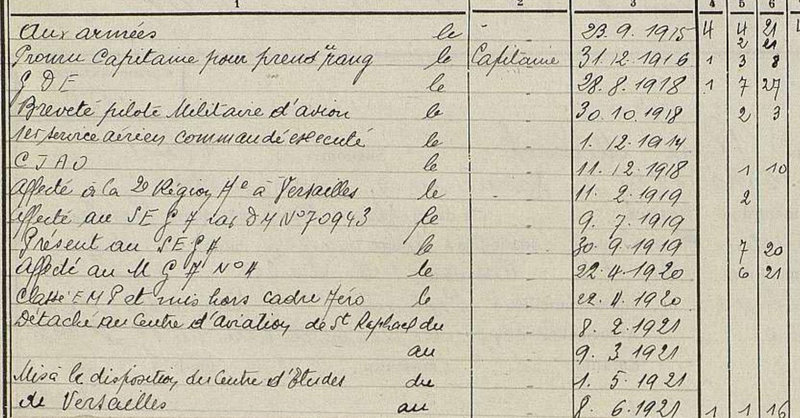 1 2 3 4 5 6
Aux armées le - 23.9.1915 4 4 21
2 21
Promu Capitaine pour prendre rang le Capitaine 31.12.1916 1 3 8
G D E le 28.8.1918 1 7 27
Breveté pilote Militaire d'avion le 30.10.1918 2 3
1er service aérien commandé exécuté 1.12.1914
C I A O le 11.12.1918 1 10
Affecté à la 2e Région à Versailles le 11.2.1919 2
affecté au S E G A DM N° 70943 le 9.7.1919
Présent au S E G A le 30.9.1919 7 20
Affecté au M G A N° 4 le 22.4.1920 6 21
Classé EMP et mis hors cadre Aéro le 22.4.1920
Détaché au Centre d'aviation de St Raphael du 8.2.1921
au 9.3.1921
Mis à la disposition du Centre d'Etudes du 1.5.1921
de Versailles au 8.6.1921 1 1 16